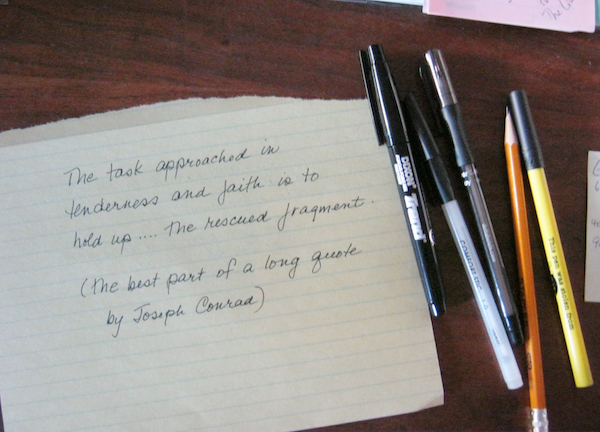 The task approached in
tenderness and faith is to
hold up .... the rescued fragment.
(the best part of a long quote
by Joseph Conrad)
DIXON
Trend
This pen was stolen from